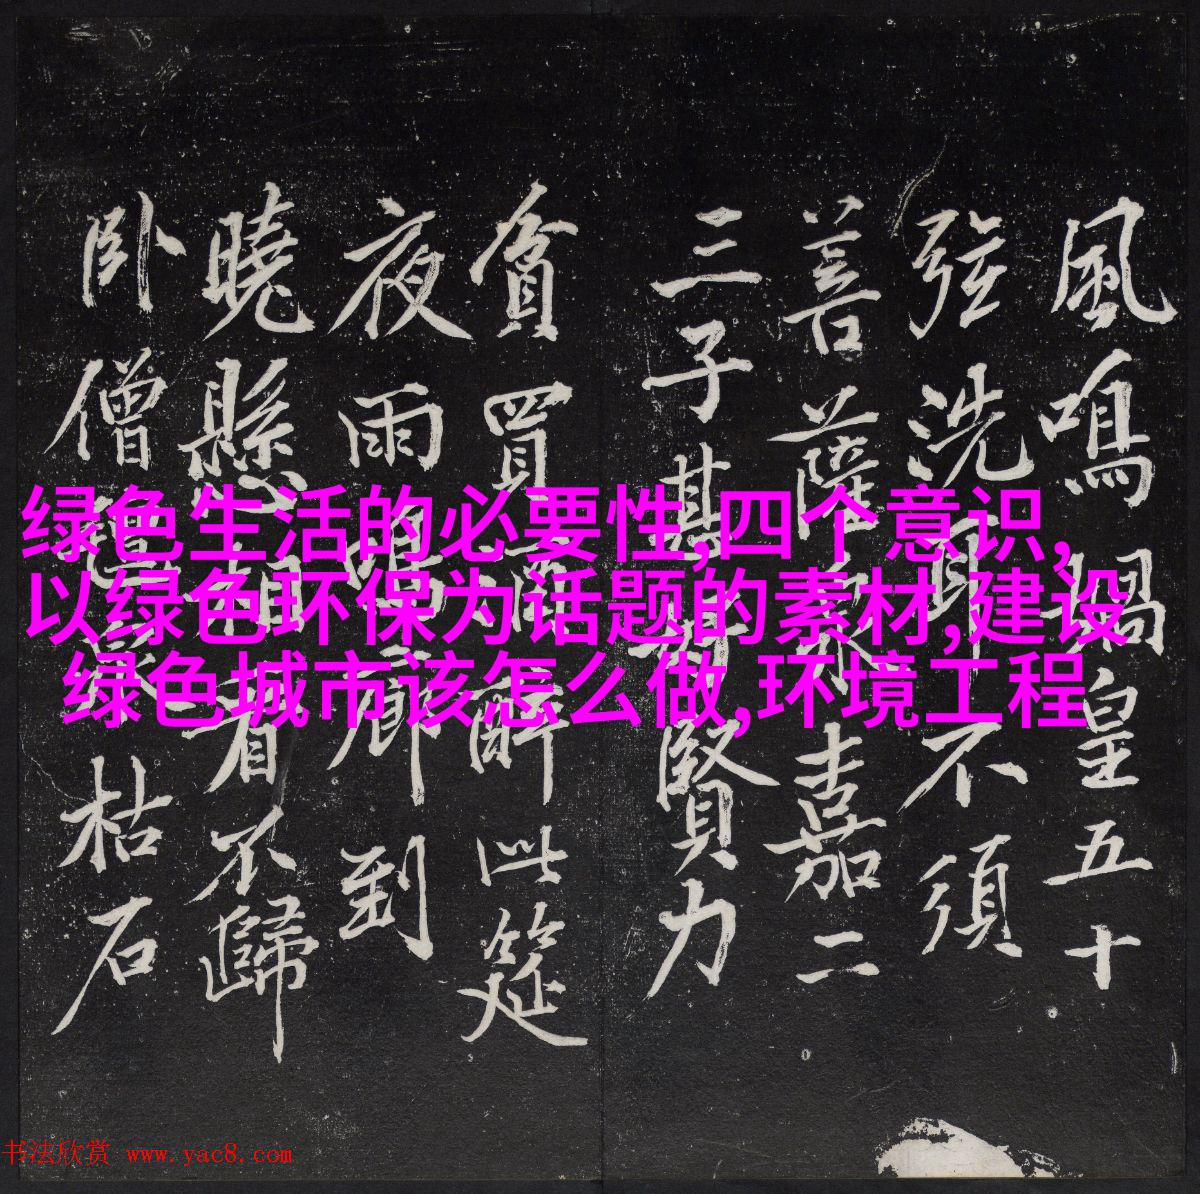 绿色生活的必要性,四个意识,
以绿色环保为话题的素材,建设
绿色城市该怎么做,环境工程
風鳴媧皇五十
弦洗耳不須
菩薩泉嘉二
三子甚好賢力
貧買酒醉此筵
夜雨鳴廊到
曉懸相看不歸
臥僧氈泉枯石
书法欣赏 www.yac8.com